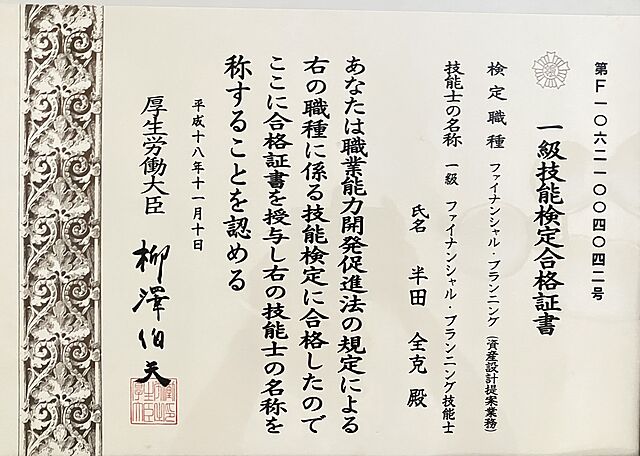 第F一〇六二一〇〇四〇四二号
一級技能検定合格証書
検定職種 ファイナンシャル・プランニング(資産設計提案業務)
技能士の名称 一級 ファイナンシャル・プランニング技能士
氏名 半田 全克 殿
あなたは職業能力開発促進法の規定による
右の職種に係る技能検定に合格したので
ここに合格証書を授与し右の技能士の名称を
称することを認める
平成十八年十一月十日
厚生労働大臣 柳澤伯夫